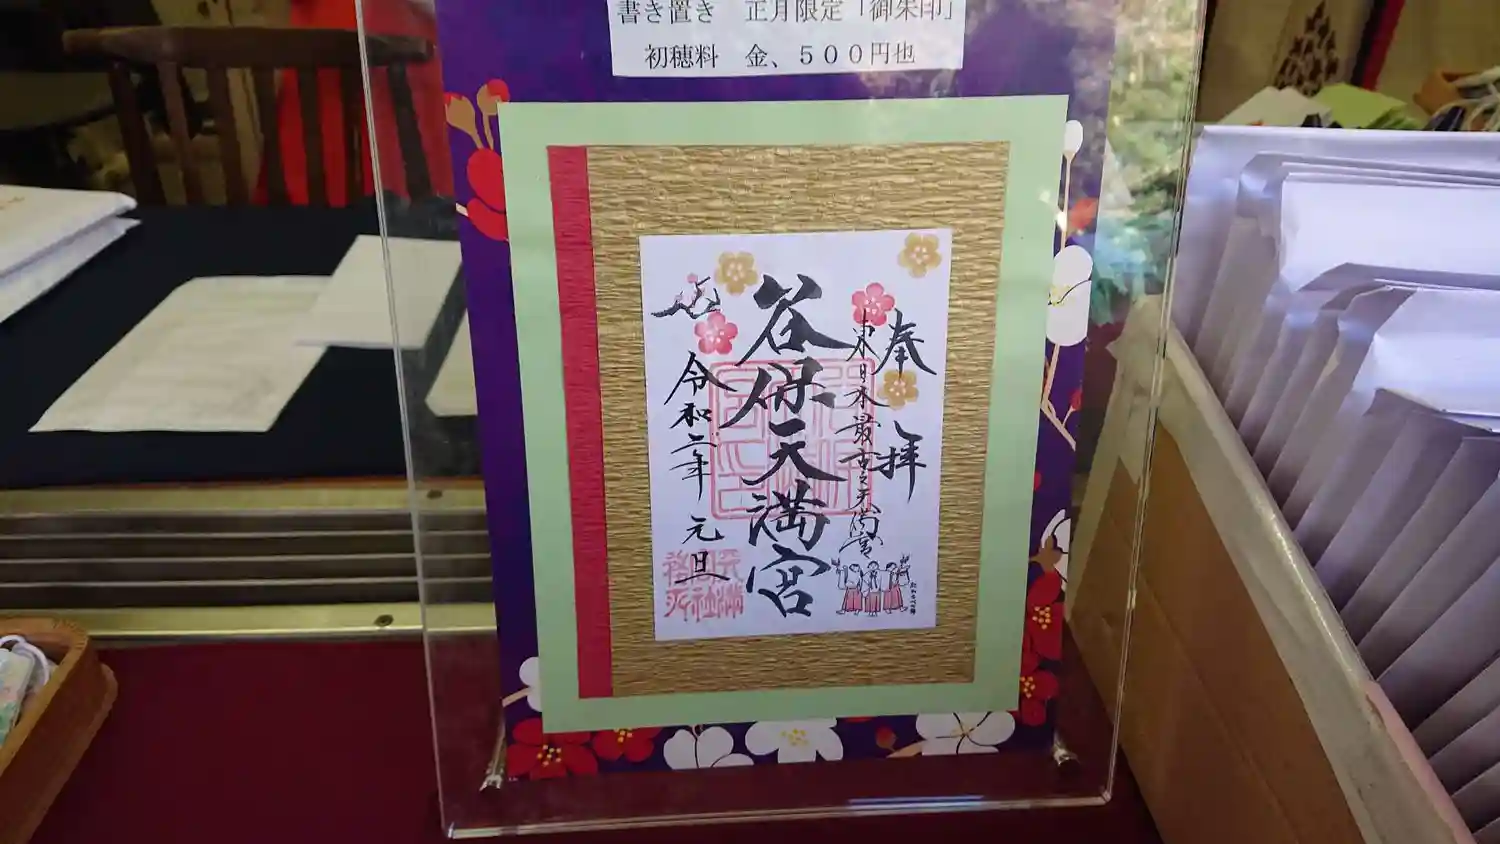 書き置き　正月限定「御朱印」
初穂料　金、５００円也
奉拝
東日本最古之天満宮
谷保天満宮
令和二年 元旦